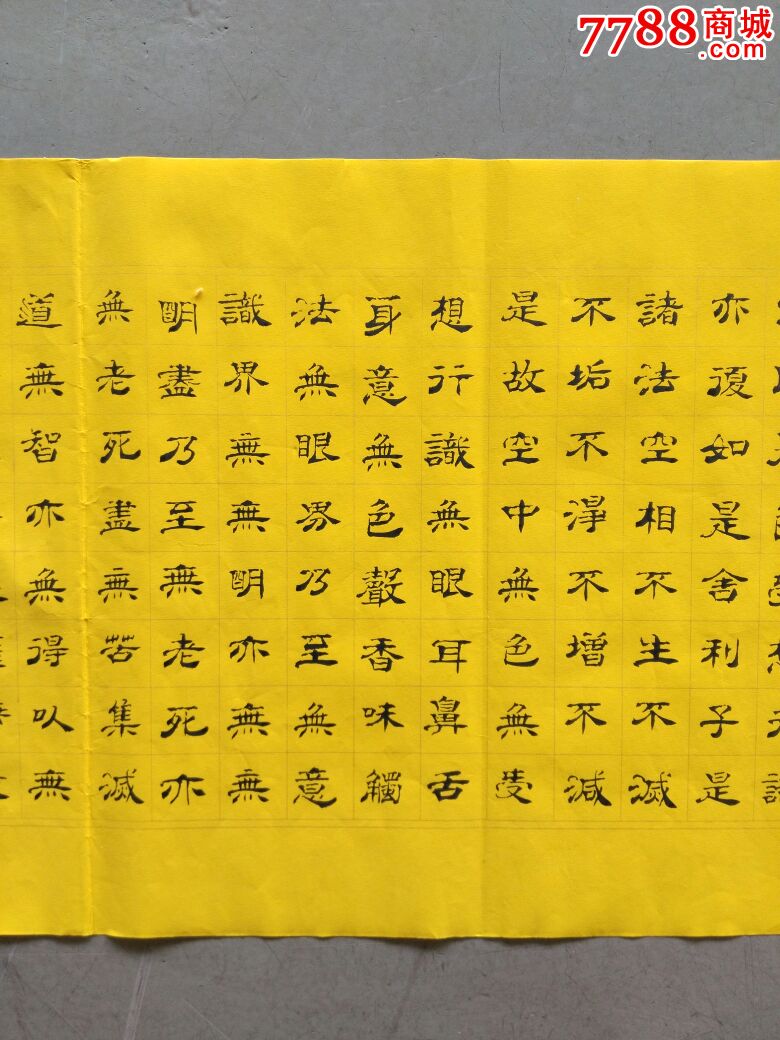 7788商城
.com
亦復如是舍利子是
諸法空相不生不滅
不垢不淨不增不減
是故空中無色無受
想行識無眼耳鼻舌
身意無色聲香味觸
法無眼界乃至無意
識界無無明亦無無
明盡乃至無老死亦
無老死盡無苦集滅
道無智亦無得以無